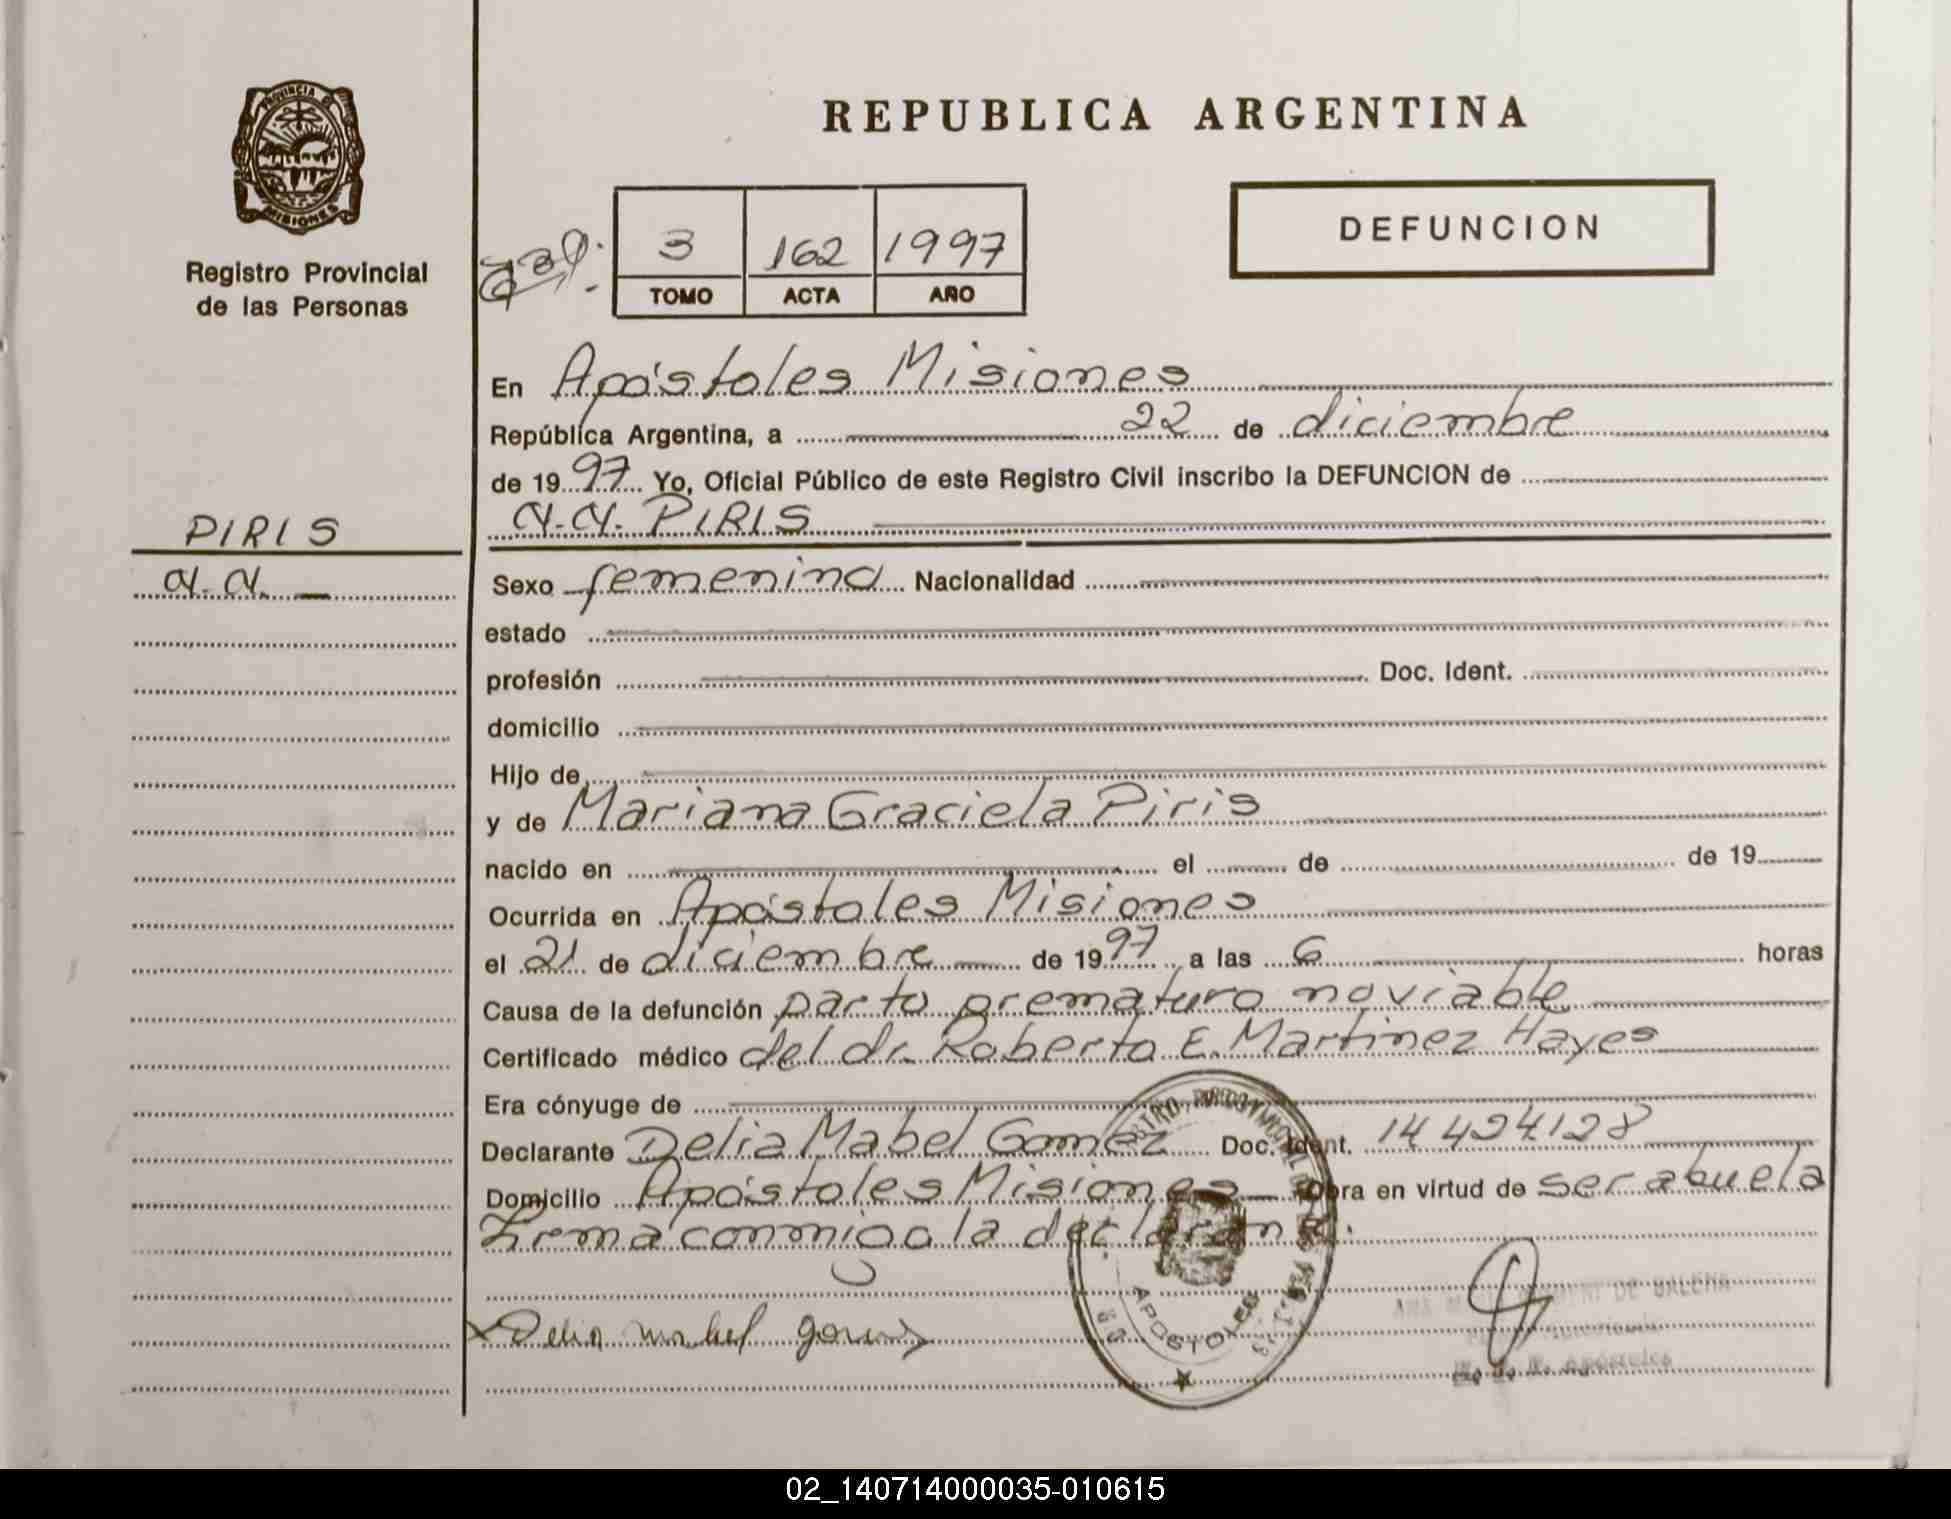 PROVINCIA D
MISIONES
Registro Provincial
de las Personas
REPUBLICA ARGENTINA
DEFUNCION
3 162 1997
TOMO ACTA AÑO
En Apóstoles Misiones
República Argentina, a 22 de diciembre
de 1997 Yo, Oficial Público de este Registro Civil inscribo la DEFUNCION de
N.N. PIRIS
PIRIS
N.N.
Sexo femenino Nacionalidad
estado
profesión Doc. Ident.
domicilio
Hijo de
y de Mariana Graciela Piris
nacido en el de de 19
Ocurrida en Apóstoles Misiones
el 21 de diciembre de 1997 a las 6 horas
Causa de la defunción parto prematuro no viable
Certificado médico del dr. Roberto E. Martinez Hayes
Era cónyuge de
Declarante Delia Mabel Gomez Doc. Ident. 14424128
Domicilio Apóstoles Misiones Obra en virtud de ser abuela
Firma conmigo la declarante.
Delia mabel gomez
APOSTOLES
DE GALEMA
Apóstoles
02_140714000035-010615